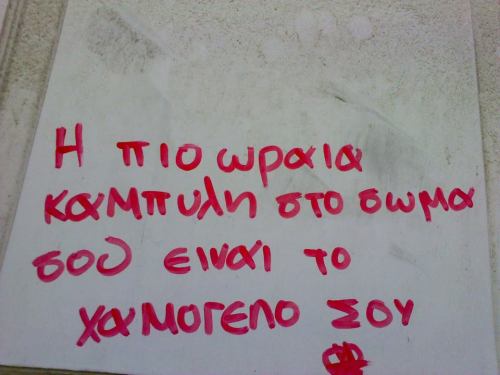 Η πιο ωραια
καμπυλη στο σωμα
σου ειναι το
χαμογελο Σου